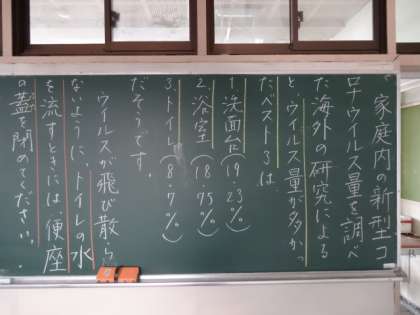 家庭内の新型コ
ロナウイルス量を調べ
た海外の研究による
と、ウイルス量が多かっ
た、ベスト3は
1、洗面台(19.23%)
2、浴室(18.75%)
3、トイレ(8.7%)
だそうです。
ウイルスが飛び散ら
ないように、トイレの水
を流すときには、便座
の蓋を閉めてください。